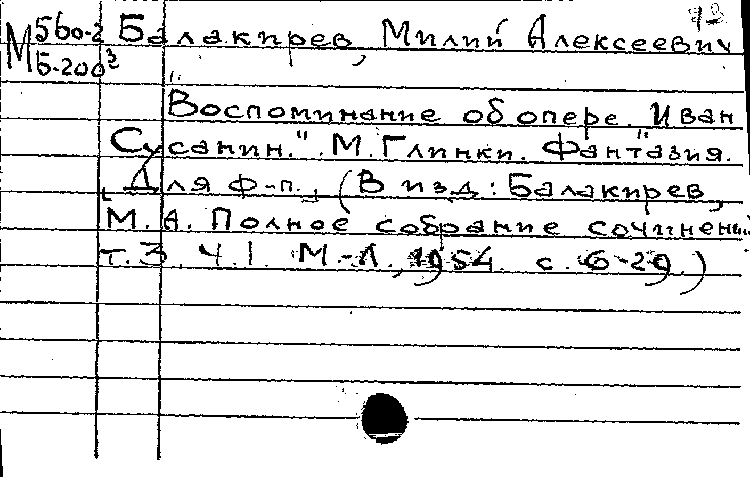 73
М 560-2 Балакирев, Милий Алексеевич
Б-200³
"Воспоминание об опере. Иван
Сусанин." М. Глинки. Фантазия.
Для ф-п., (В изд: Балакирев,
М. А. Полное собрание сочинений
т. 3. Ч. I. М.-Л., 1954. с. 6-29.)